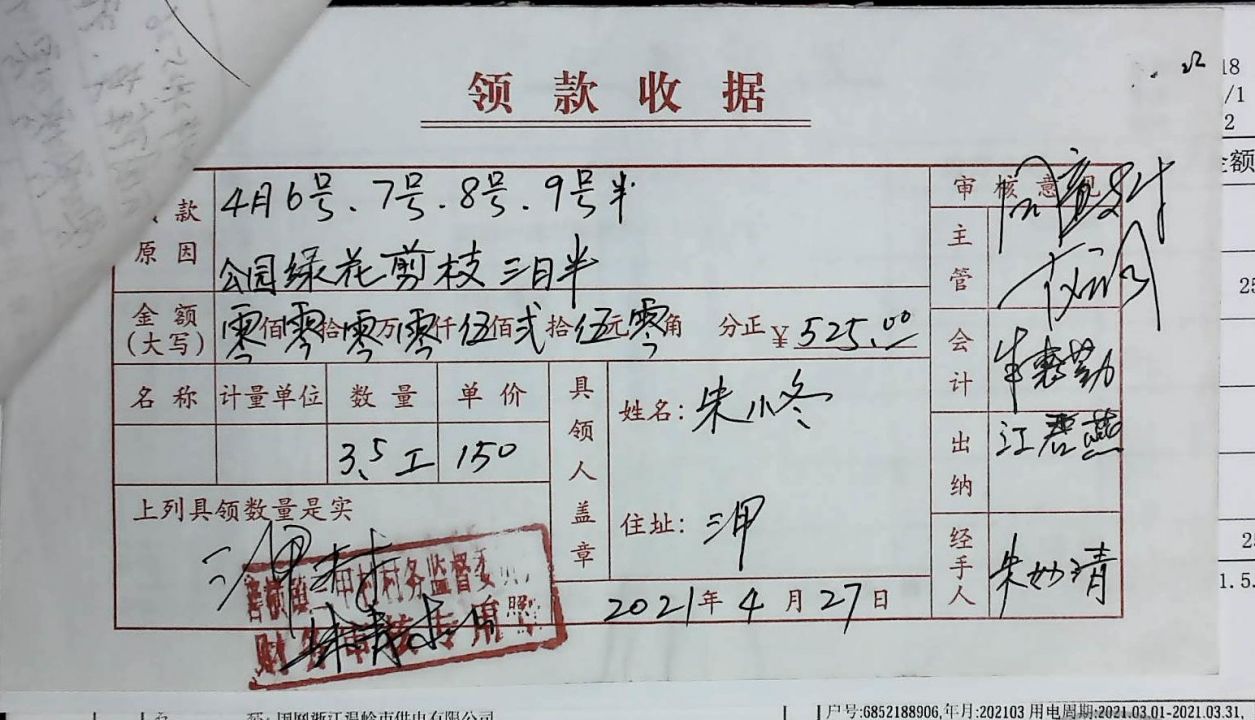 领款收据
款原因
4月6号、7号、8号、9号半
公园绿花剪枝三日半
审核意见
同意支付
主管
金额(大写)
零佰零拾零万零仟伍佰弍拾伍元零角 分正¥525.00
会计
名称 计量单位 数量 单价
3.5工 150
具领人盖章
姓名:朱小冬
住址:三甲
出纳
江君燕
经手人
朱妙清
上列具领数量是实
三甲村
甲村村务监督委
财务审核专用
2021年4月27日
18
/1
2
金额
25
25
1.5.
国网浙江温岭市供电有限公司
户号:6852188906,年月:202103 用电周期:2021.03.01-2021.03.31,